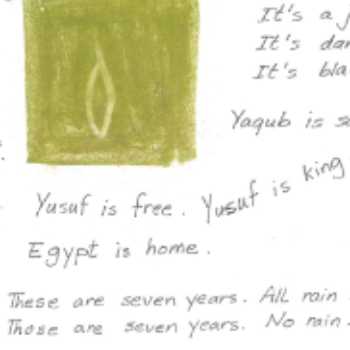 It's a
It's
It's
Yaqub is
Yusuf is free. Yusuf is king
Egypt is home.
These are seven years. All rain
Those are seven years. No rain.